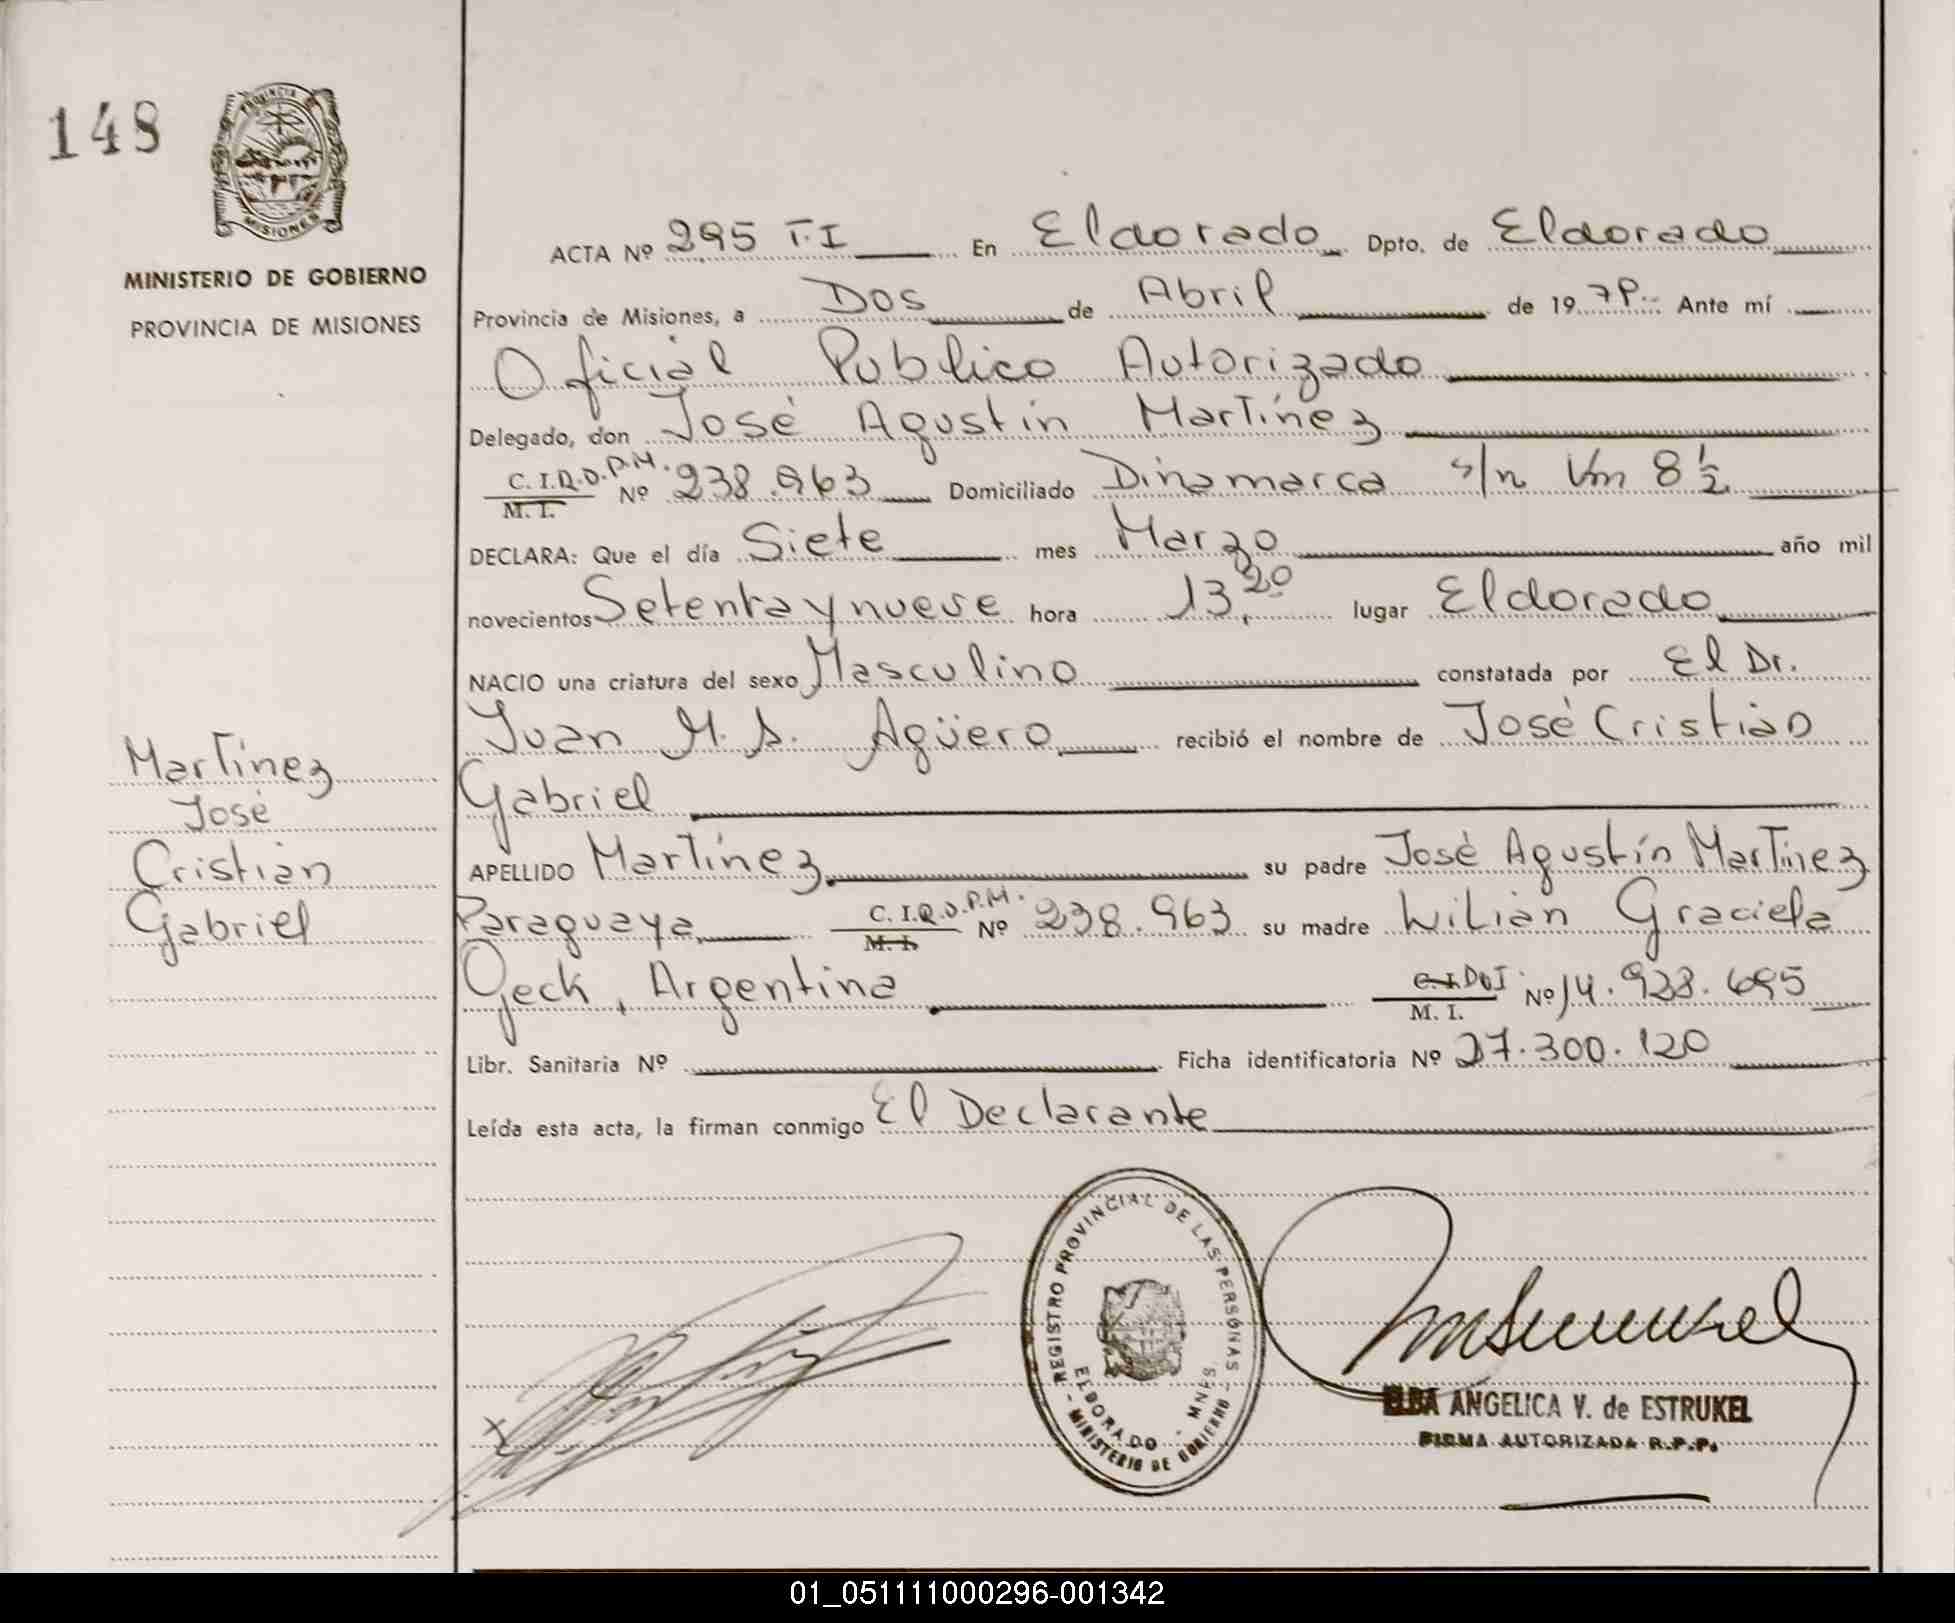 148
PROVINCIA
MISIONES
MINISTERIO DE GOBIERNO
PROVINCIA DE MISIONES
ACTA Nº 295 T.I En Eldorado Dpto. de Eldorado
Provincia de Misiones, a Dos de Abril de 1979 Ante mí
Oficial Publico Autorizado
Delegado, don José Agustín Martínez
C.I.R.D.P.M. M. I. Nº 238.963 Domiciliado Dinamarca s/n Km 8 ½
DECLARA: Que el día Siete mes Marzo año mil
novecientos Setenta y nueve hora 13,20 lugar Eldorado
NACIO una criatura del sexo Masculino constatada por El Dr.
Juan M. A. Agüero recibió el nombre de José Cristian
Gabriel
APELLIDO Martínez su padre José Agustín Martínez
Paraguaya C.I.R.D.P.M. M. I. Nº 238.963 su madre Lilian Graciela
Ojeck, Argentina M. I. Nº 14.938.695
Libr. Sanitaria Nº Ficha identificatoria Nº 27.300.120
Leída esta acta, la firman conmigo El Declarante
Martínez
José
Cristian
Gabriel
REGISTRO PROVINCIAL DE LAS PERSONAS
ELDORADO - MNES.
MINISTERIO DE GOBIERNO
ELBA ANGELICA V. de ESTRUKEL
FIRMA AUTORIZADA R.P.P.
01_051111000296-001342